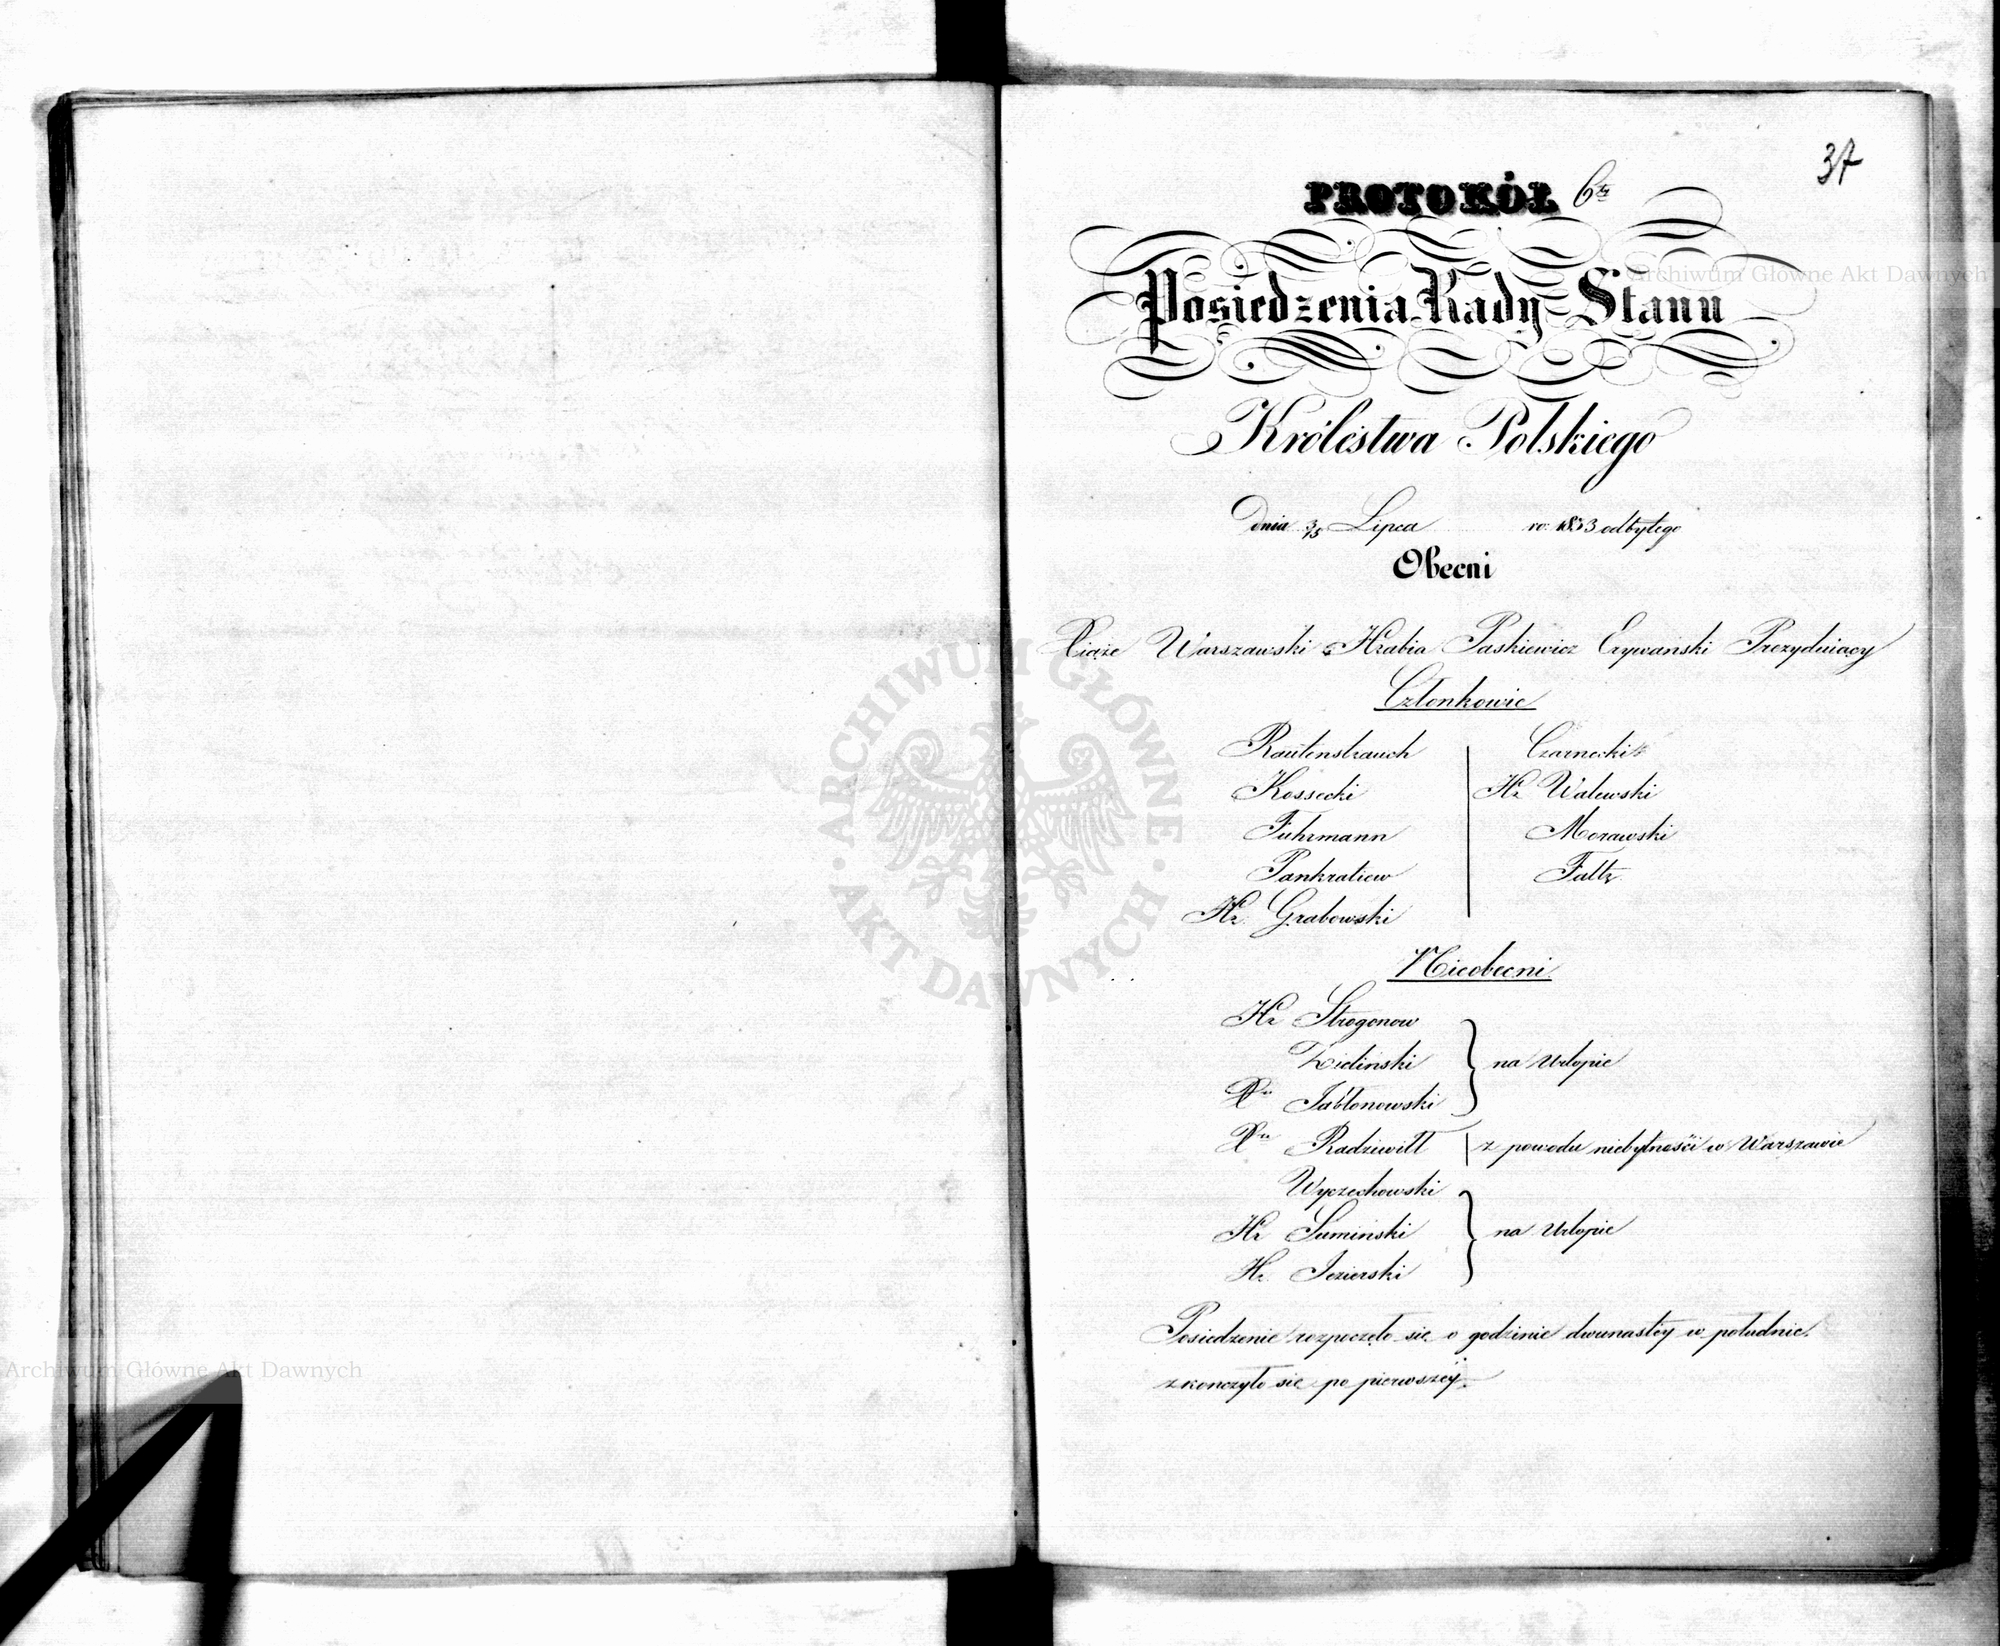 37
PROTOKÓŁ 6ty
Posiedzenia Rady Stanu
Królestwa Polskiego
Dnia 3/5 Lipca ro: 1833 odbytego
Obecni
Xiąże Warszawski Hrabia Paskiewicz Erywański Prezyduiący
Członkowie
Rautenstrauch
Kossecki
Fuhrmann
Pankratiew
Hr. Grabowski
Czarnecki
Hr Walewski
Morawski
Faltz
Nieobecni
Hr Strogonow
Zieliński
Xże Jabłonowski
na Urlopie
Xże Radziwiłł z powodu niebytności w Warszawie
Wyczechowski
Hr Sumiński
Hr. Jezierski
na Urlopie
Posiedzenie rozpoczęło się o godzinie dwunastey w południe.
zkończyło się po pierwszey.
Archiwum Główne Akt Dawnych
ARCHIWUM GŁÓWNE · AKT DAWNYCH ·
Archiwum Główne Akt Dawnych